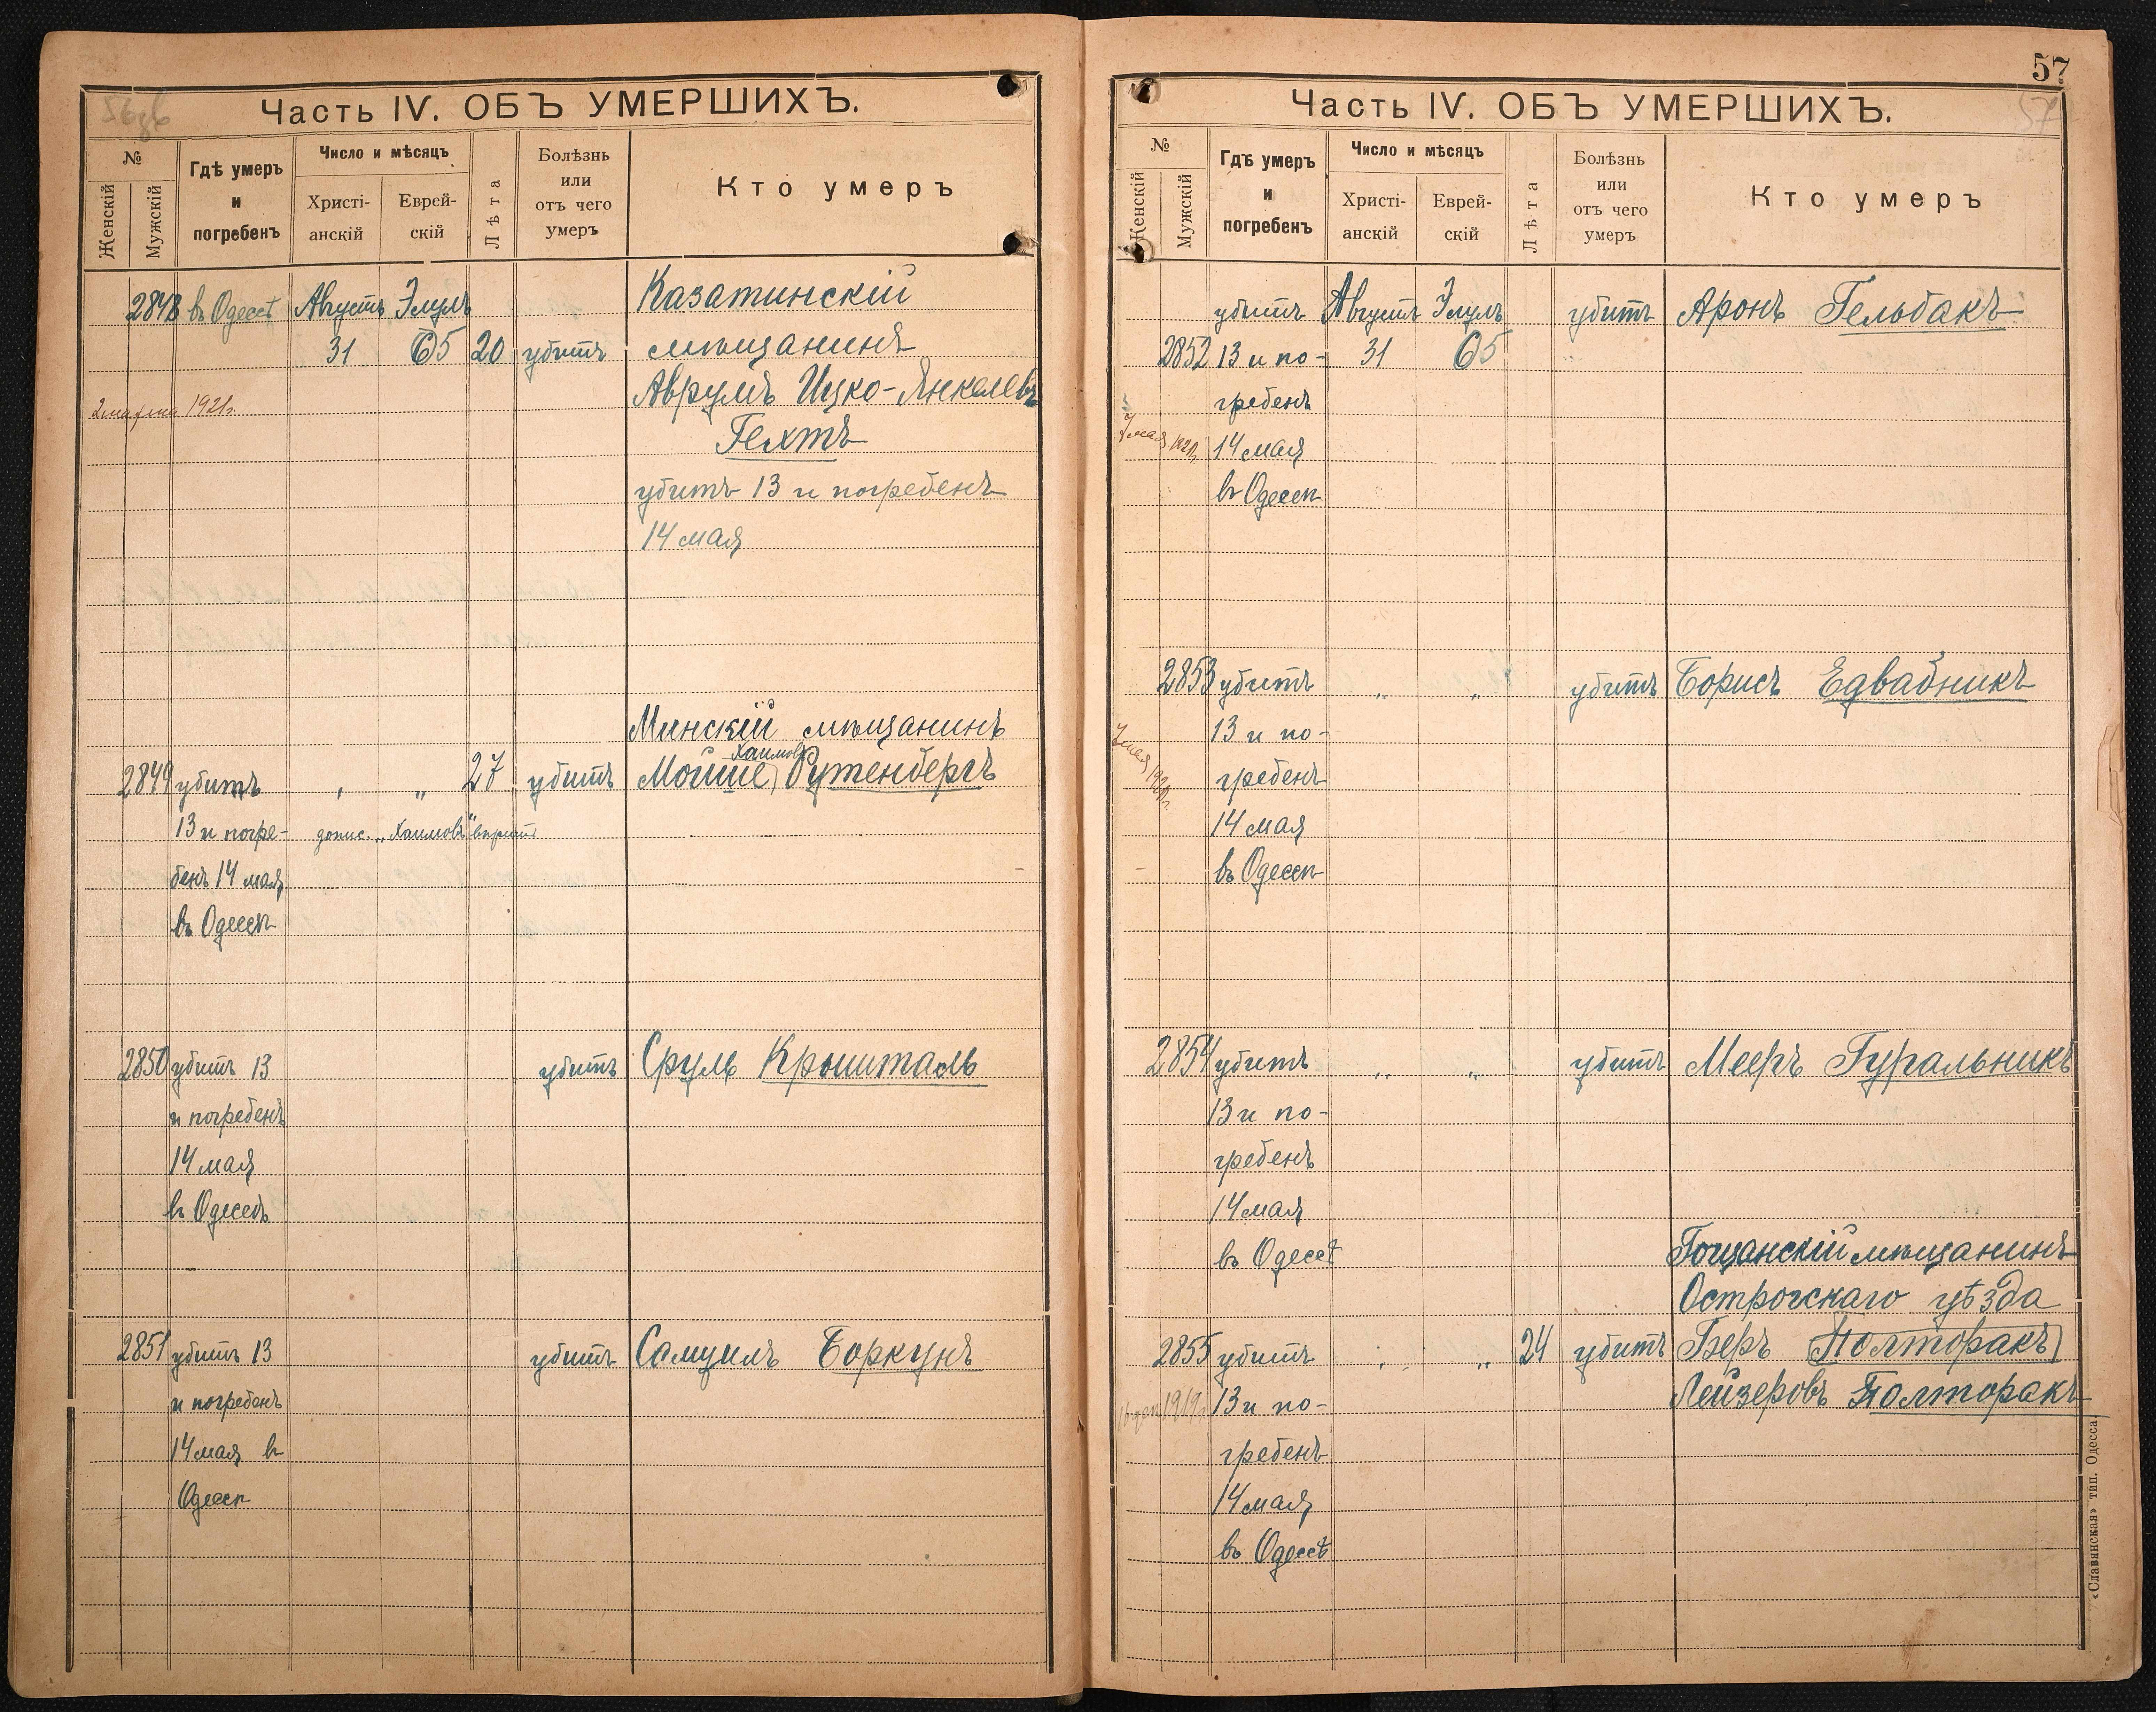 Часть IV. ОБЪ УМЕРШИХЪ.
№
Женскій
Мужскій
Гдѣ умеръ
и
погребенъ
Число и мѣсяцъ
Христі-
анскій
Еврей-
скій
Лѣта
Болѣзнь
или
отъ чего
умеръ
Кто умеръ
2848 въ Одессѣ Августъ Элулъ Казатинскій
31 65 20 убитъ мѣщанинъ
Аврумъ Ицко-Янкелевъ
1921г.
Гехтъ
убитъ 13 и погребенъ
14 мая
Минскій мѣщанинъ
Хаимовъ
2849 убитъ „ „ 27 убитъ Мойше Рутенбергъ
13 и погре- допис. „Хаимовъ"
бенъ 14 мая
въ Одессѣ
2850 убитъ 13 убитъ Сруль Крышталь
и погребенъ
14 мая
въ Одессѣ
2851 убитъ 13 убитъ Самуилъ Боркунъ
и погребенъ
14 мая въ
Одессѣ
57
57
Часть IV. ОБЪ УМЕРШИХЪ.
№
Женскій
Мужскій
Гдѣ умеръ
и
погребенъ
Число и мѣсяцъ
Христі-
анскій
Еврей-
скій
Лѣта
Болѣзнь
или
отъ чего
умеръ
Кто умеръ
убитъ Августъ Элулъ убитъ Аронъ Гельбакъ
2852 13 и по- 31 65
гребенъ
7 мая
14 мая
въ Одессѣ
2853 убитъ „ „ убитъ Борисъ Едвабникъ
13 и по-
7 мая
гребенъ
14 мая
въ Одессѣ
2854 убитъ „ „ убитъ Мееръ Гуральникъ
13 и по-
гребенъ
14 мая
въ Одессѣ
Гощанскій мѣщанинъ
Острогскаго уѣзда
2855 убитъ „ „ 24 убитъ Беръ (Полторакъ)
1919г. 13 и по- Лейзеровъ Полторакъ
гребенъ
14 мая
въ Одессѣ
«Славянская» тип. Одесса.